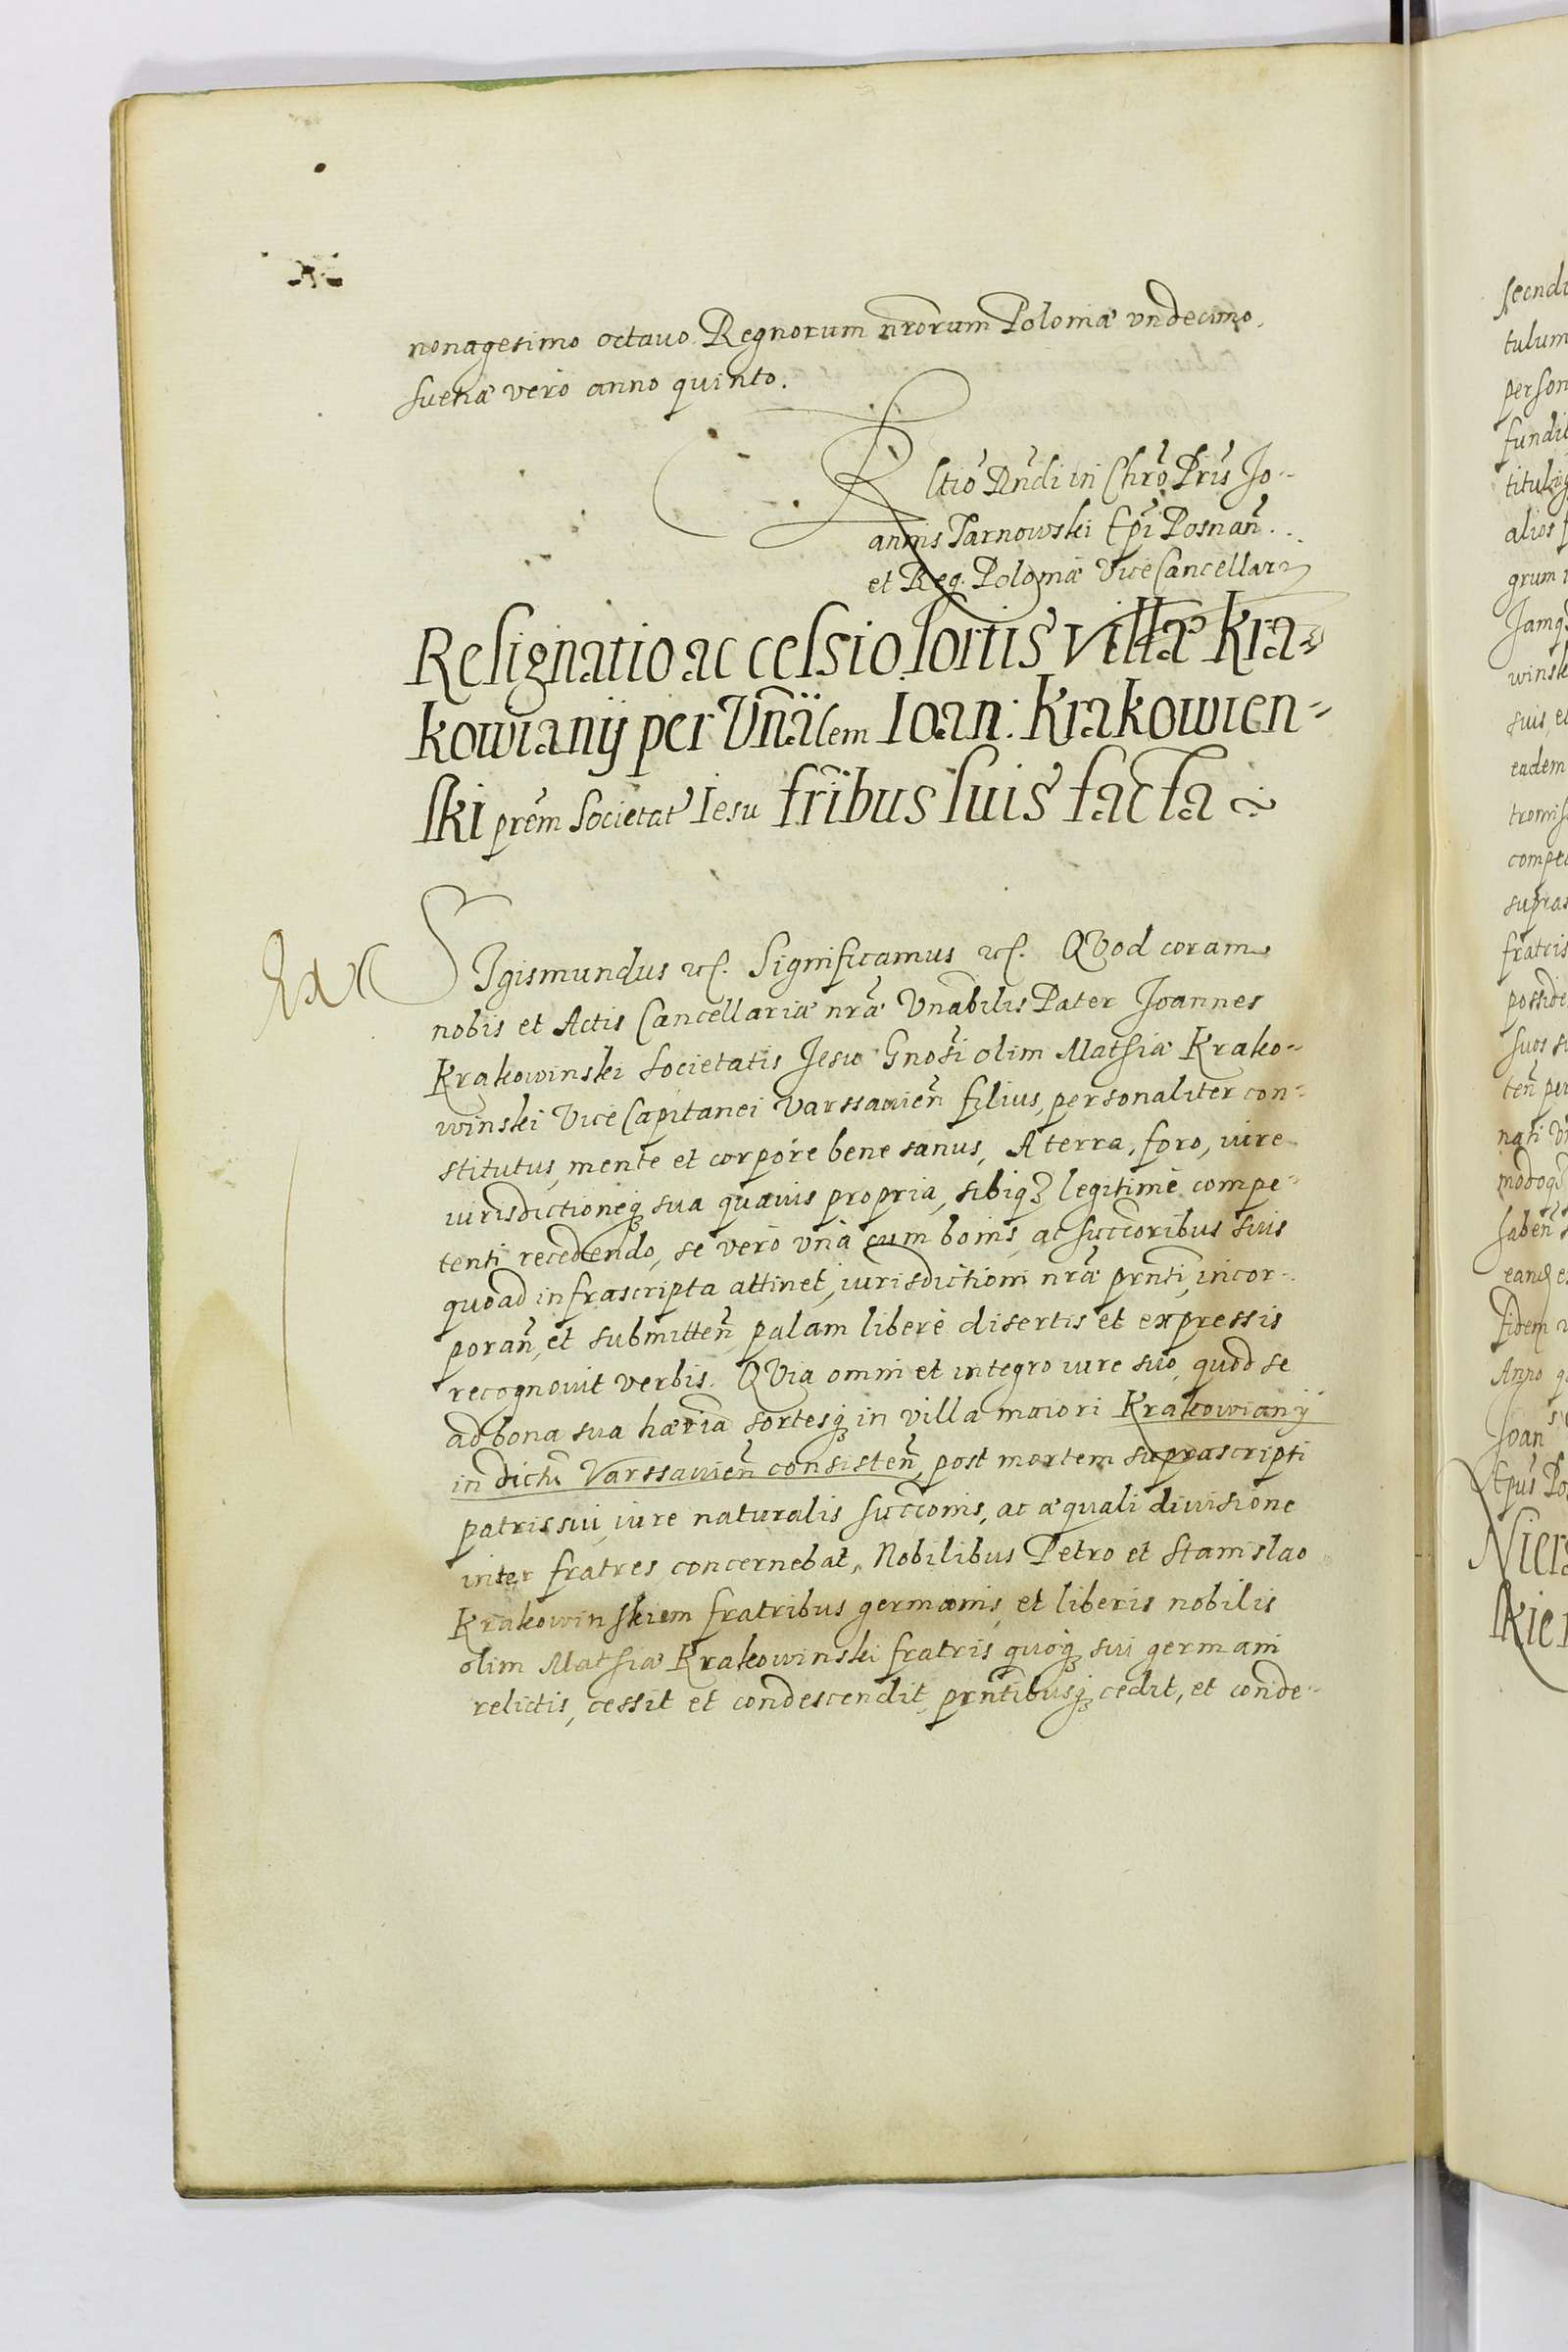 nonagesimo octauo Regnorum nrorum Poloniæ vndecimo,
Suetiæ vero anno quinto.
Rltio Rndi in Chro Pris Jo-
annis Tarnowski Epi Posnan.
et Reg. Poloniæ ViceCancellarÿ
Resignatio ac cessio sortis villæ Kra-
kowianij per Vnãlem Ioan: Krakowien-
ski prem Societat Iesu fribus suis facta
SIgismundus etc. Significamus etc. QVod coram
nobis et Actis Cancellariæ nræ Vnabilis Pater Joannes
Krakowinski Societatis Jesu Gnosi olim Mathiæ Krako-
winski ViceCapitanei Varssauien filius, personaliter con-
stitutus, mente et corpore bene sanus, A terra, foro, iure
iurisdictioneq; sua quauis propria, sibiq; legitimè compe-
tenti recedendo, se verò vnà cum bonis ac succoribus suis
quoad infrascripta attinet, iurisdictioni nræ prnti, incor-
poran, et submitten, palam liberè disertis et expressis
recognouit verbis. QVia omni et integro iure suo, quod se
ad bona sua hæria sortesq; in villa maiori Krakowianÿ
in dictu Varssauien consisten, post mortem suprascripti
patris sui, iure naturalis succonis, ac æquali diuisione
inter fratres concernebat, Nobilibus Petro et Stanislao
Krakowinskiem fratribus germanis, et liberis nobilis
olim Mathiæ Krakowinski fratris quoq; sui germani
relictis, cessit et condescendit, prntibusq; cedit, et conde-